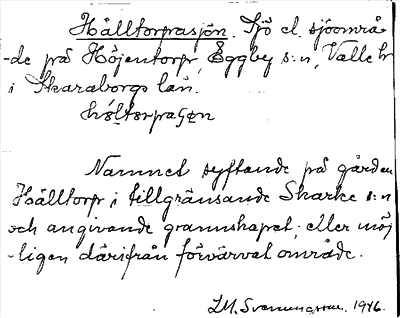 Hålltorpasjön. Sjö el. sjöområ-
-de på Höjentorp, Eggby s:n, Valle hr
i Skaraborgs län.
hóltorpaʃøn
Namnet syftande på gården
Hålltorp i tillgränsande Skarke s:n
och angivande grannskapet, eller möj-
-ligen därifrån förvärvat område.
I.M. Svenungsson. 1946.